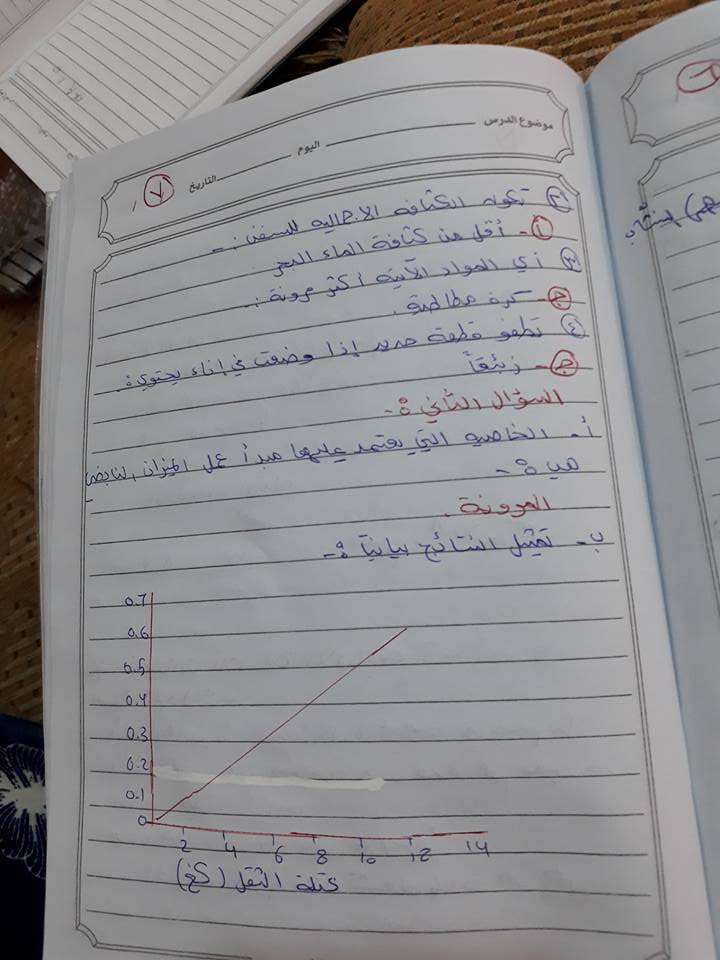 موضوع الدرس
اليوم
التاريخ
٧
٢ تكون الكثافة الاجمالية للسفن :-
أ- أقل من كثافة الماء البحر
٣ أي المواد الآتية أكثر مرونة :
ج- كرة مطاطية .
٤ تطفو قطعة حديد إذا وضعت في إناء يحتوي :
ج- زئبقاً
السؤال الثاني :-
أ- الخاصيه التي يعتمد عليها مبدأ عمل الميزان النابضي
هي :-
المرونة .
ب- تمثيل النتائج بيانياً :-
0.7
0.6
0.5
0.4
0.3
0.2
0.1
0
2 4 6 8 10 12 14
كتلة الثقل (كغ)